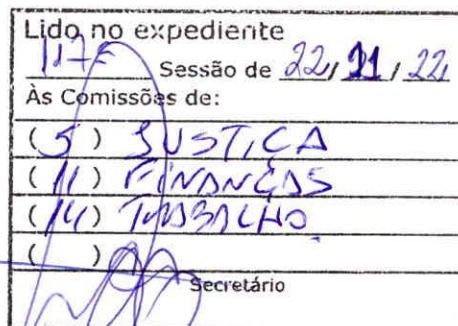 Lido no expediente
117ª Sessão de 22/11/22
Às Comissões de:
(5) JUSTIÇA
(11) FINANÇAS
(14) TRABALHO
( )
Secretário